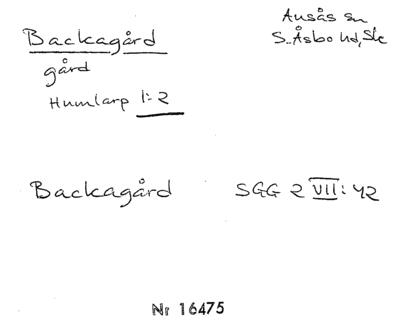 Backagård
Ausås sn
S. Åsbo hd, Sk
gård
Humlarp 1:2
Backagård SGG 2 VII: 42
Nr 16475